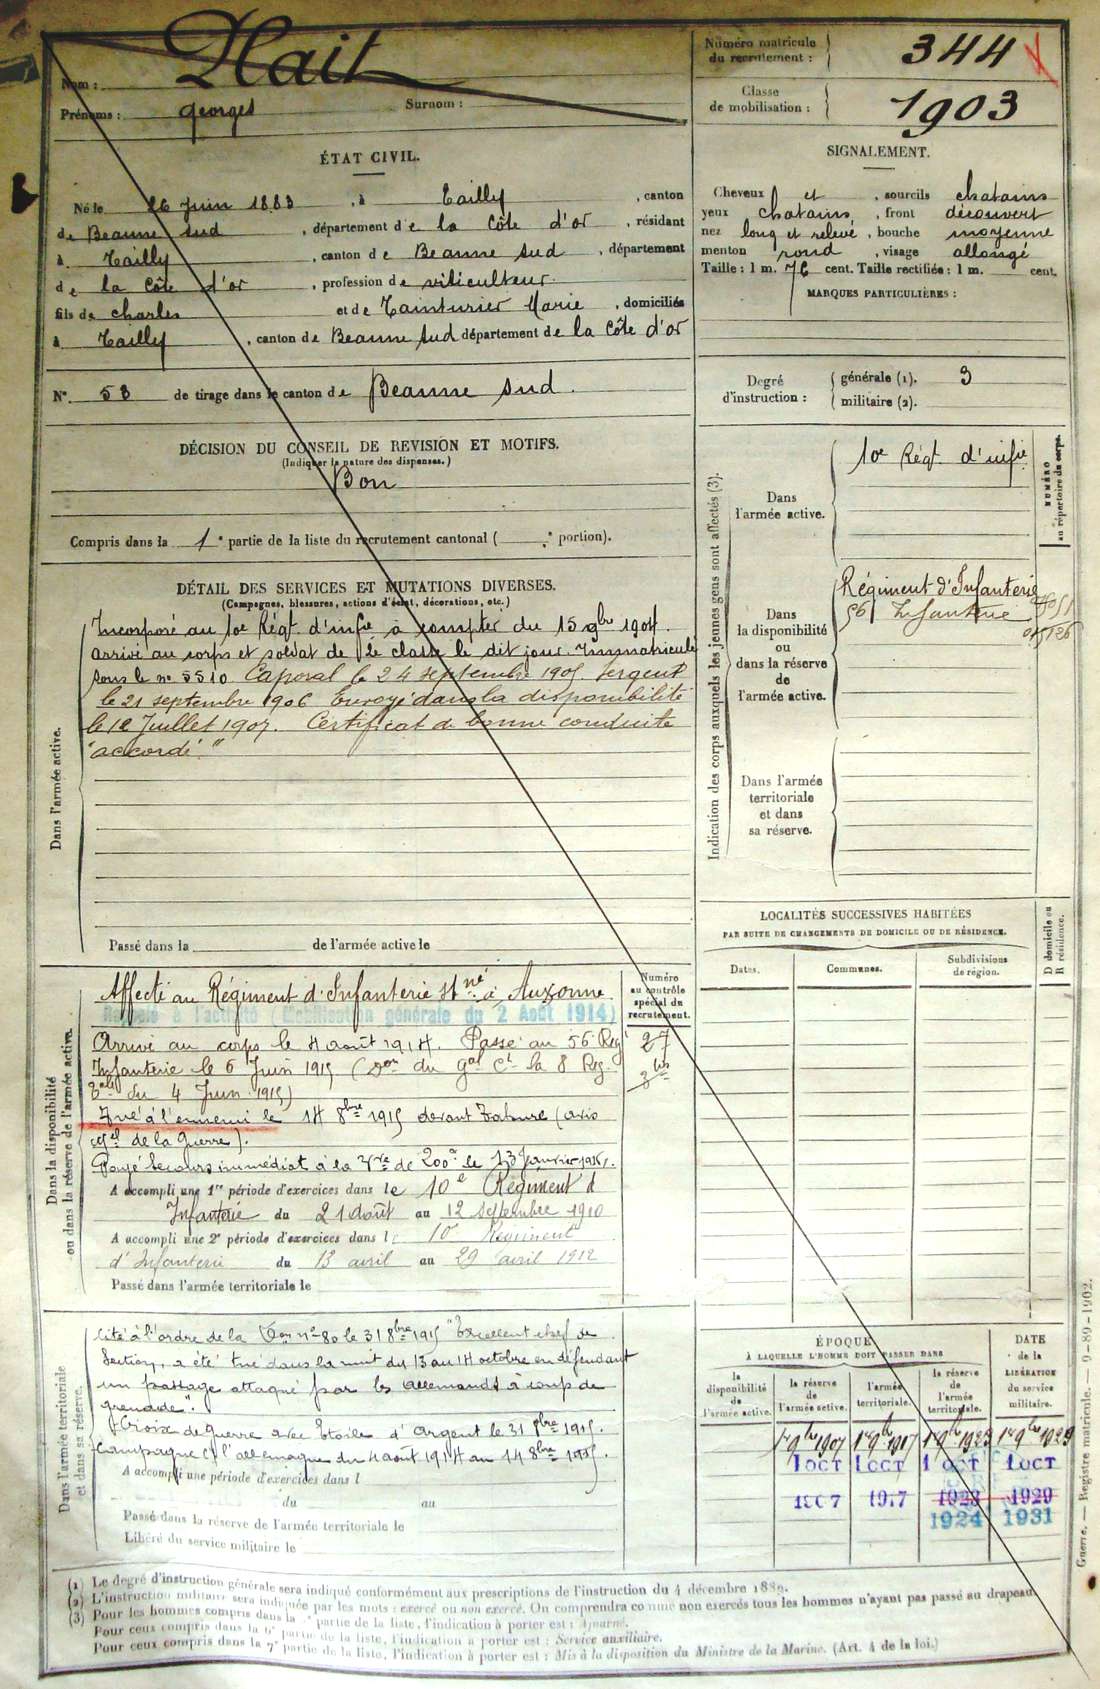 Nom : Plait
Prénoms : Georges Surnom :
Numéro matricule du recrutement : 344
Classe de mobilisation : 1903
ÉTAT CIVIL.
Né le 26 Juin 1883, à Tailly, canton
de Beaune sud, département de la Côte d'or, résidant
à Tailly, canton de Beaune sud, département
de la Côte d'or, profession de viticulteur
fils de Charles et de Tainturier Marie, domiciliés
à Tailly, canton de Beaune sud département de la Côte d'or
N° 53 de tirage dans le canton de Beaune sud.
SIGNALEMENT.
Cheveux et, sourcils chatains
yeux chatains, front découvert
nez long et relevé, bouche moyenne
menton rond, visage allongé
Taille : 1 m. 76 cent. Taille rectifiée : 1 m. cent.
MARQUES PARTICULIÈRES :
Degré d'instruction :
générale (1). 3
militaire (2).
DÉCISION DU CONSEIL DE REVISION ET MOTIFS.
(Indiquer la nature des dispenses.)
Bon
Compris dans la 1e partie de la liste du recrutement cantonal ( e portion).
DÉTAIL DES SERVICES ET MUTATIONS DIVERSES.
(Campagnes, blessures, actions d'éclat, décorations, etc.)
Dans l'armée active.
Incorporé au 10e Régt. d'infie à compter du 15 9bre 1904.
Arrivé au corps et soldat de 2e classe le dit jour. Immatriculé
sous le n° 5510 Caporal le 24 septembre 1905. Sergent
le 21 septembre 1906 Envoyé dans la disponibilité
le 12 Juillet 1907. Certificat de bonne conduite
"accordé"
Passé dans la de l'armée active le
Indication des corps auxquels les jeunes gens sont affectés (3).
NUMÉRO au répertoire du corps.
Dans l'armée active.
10e Régt. d'infie
Dans la disponibilité ou dans la réserve de l'armée active.
Régiment d'Infanterie
56 Infanterie
Dans l'armée territoriale et dans sa réserve.
LOCALITÉS SUCCESSIVES HABITÉES
PAR SUITE DE CHANGEMENTS DE DOMICILE OU DE RÉSIDENCE.
Dates. Communes. Subdivisions de région. D domicile ou R résidence.
Dans la disponibilité ou dans la réserve de l'armée active.
Numéro au contrôle spécial du recrutement.
27
Affecté au Régiment d'Infanterie stné à Auxonne
Rappelé à l'activité (Mobilisation générale du 2 Août 1914)
Arrivé au corps le 4 août 1914. Passé au 56 Reg
Infanterie le 6 Juin 1915 (Don du Gal Ct la 8 Reg.
du 4 Juin 1915)
Tué à l'ennemi le 14 8bre 1915 devant Tahure (avis
de la Guerre).
Payé Secours immédiat à la Vve de 200f le 13 Janvier 1916.
A accompli une 1re période d'exercices dans le 10e Régiment d
Infanterie du 21 août au 12 septembre 1910
A accompli une 2e période d'exercices dans l 10e Régiment
d'Infanterie du 13 avril au 29 avril 1912
Passé dans l'armée territoriale le
Dans l'armée territoriale et dans sa réserve.
Cité à l'ordre de la Don n° 80 le 31 8bre 1915 "Excellent chef de
Section, a été tué dans la nuit du 13 au 14 octobre en défendant
un passage attaqué par les allemands à coup de
grenade".
Croix de guerre avec Etoile d'Argent le 31 8bre 1915.
Campagne Ct l'allemagne du 4 août 1914 au 14 8bre 1915.
A accompli une période d'exercices dans l
du au
Passé dans la réserve de l'armée territoriale le
Libéré du service militaire le
ÉPOQUE
À LAQUELLE L'HOMME DOIT PASSER DANS
DATE de la LIBÉRATION du service militaire.
la disponibilité de l'armée active. la réserve de l'armée active. l'armée territoriale. la réserve de l'armée territoriale.
1er 9bre 1907 1er 9bre 1917 1er 9bre 1923 1er 9bre 1929
1 OCT 1 OCT 1 OCT 1 OCT
1907 1917 1923 1929
1924 1931
Guerre. — Registre matricule. — 9-89-1902.
(1) Le degré d'instruction générale sera indiqué conformément aux prescriptions de l'instruction du 4 décembre 1889.
(2) L'instruction militaire sera indiquée par les mots : exercé ou non exercé. On comprendra comme non exercés tous les hommes n'ayant pas passé au drapeau
(3) Pour les hommes compris dans la partie de la liste, l'indication à porter est : Ajourné.
Pour ceux compris dans la 6e partie de la liste, l'indication à porter est : Service auxiliaire.
Pour ceux compris dans la 7e partie de la liste, l'indication à porter est : Mis à la disposition du Ministre de la Marine. (Art. 4 de la loi.)